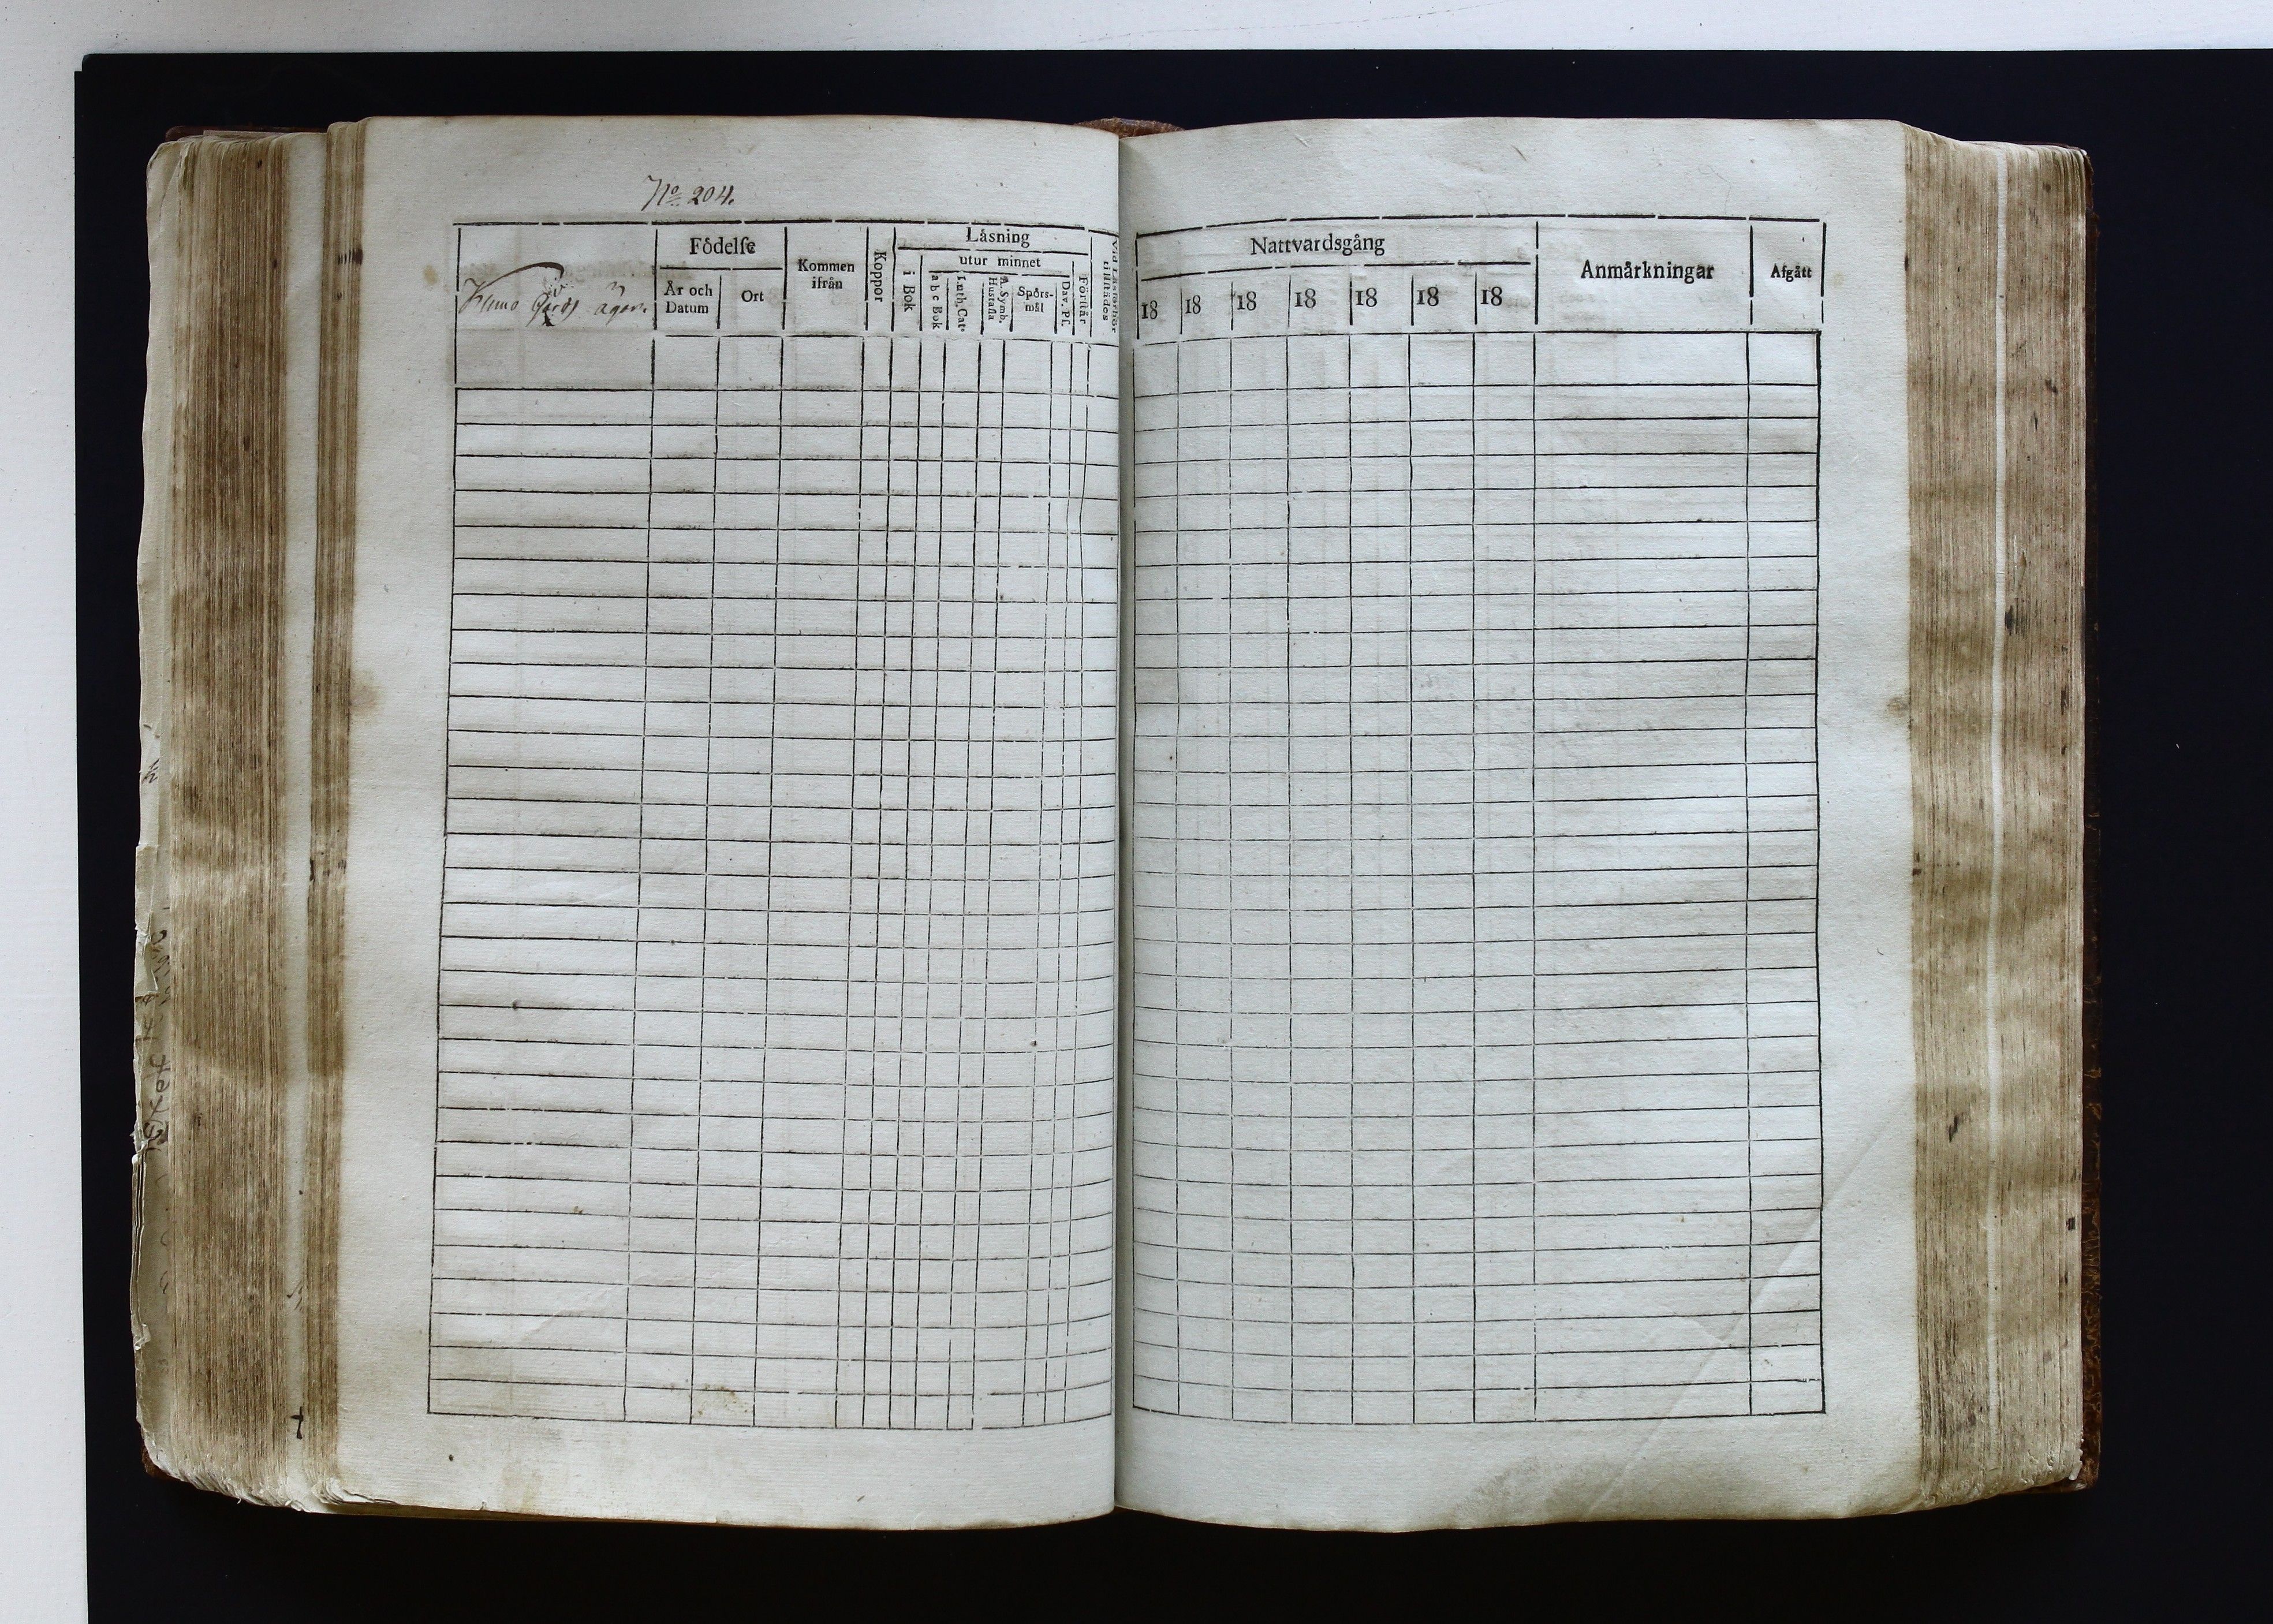 No 204.
Födelſe
År och Datum
Ort
Kommen ifrån
Koppor
Låsning
i Bok
utur minnet
a b c Bok
Luth. Cat.
A. Symb. Hustafla
Spörs-mål
Dav. Pſ.
Förſtår
Vid Låsförhör tillſtådes
Kimo ågor.
Nattvardsgång
18 18 18 18 18 18 18
Anmårkningar
Afgått